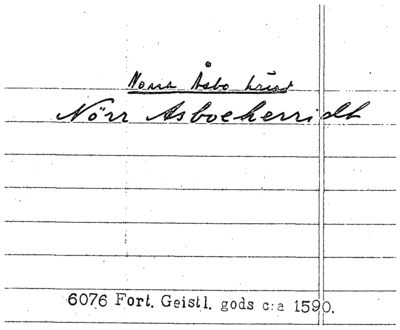 Norra Åsbo härad
Nörr Asboeherridt
6076 Fort. Geistl. gods c:a 1590.